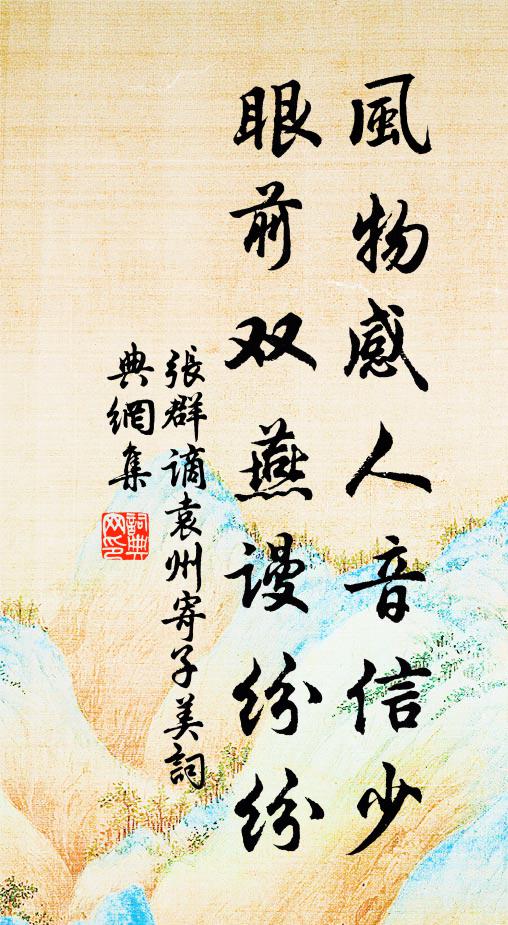 風物感人音信少
眼前双燕謾紛紛
張群謫袁州寄子美詞
典網集
詞典
网印